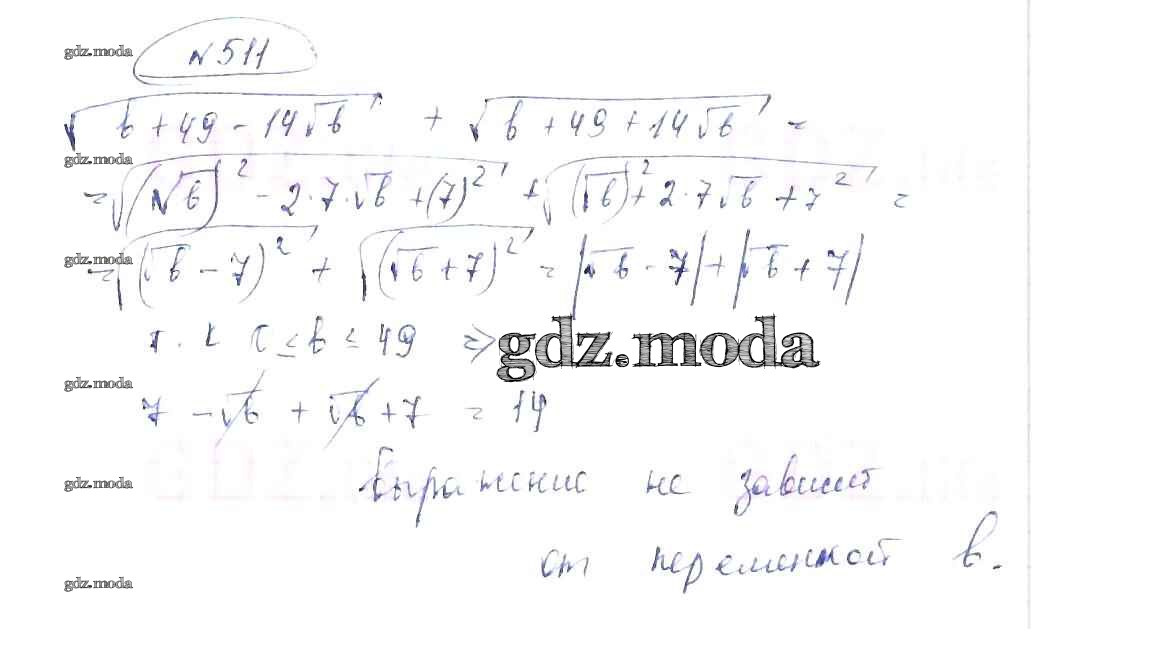 gdz.moda
№511
√(b + 49 - 14√b) + √(b + 49 + 14√b) =
gdz.moda
= √((√b)² - 2·7·√b + (7)²) + √((√b)² + 2·7√b + 7²) =
gdz.moda
= √((√b - 7)²) + √((√b + 7)²) = |√b - 7| + |√b + 7|
т. к ≤ b ≤ 49 ⇒
gdz.moda
gdz.moda
7 - √b + √b + 7 = 14
gdz.moda
Выражение не зависит
от переменной b.
gdz.moda